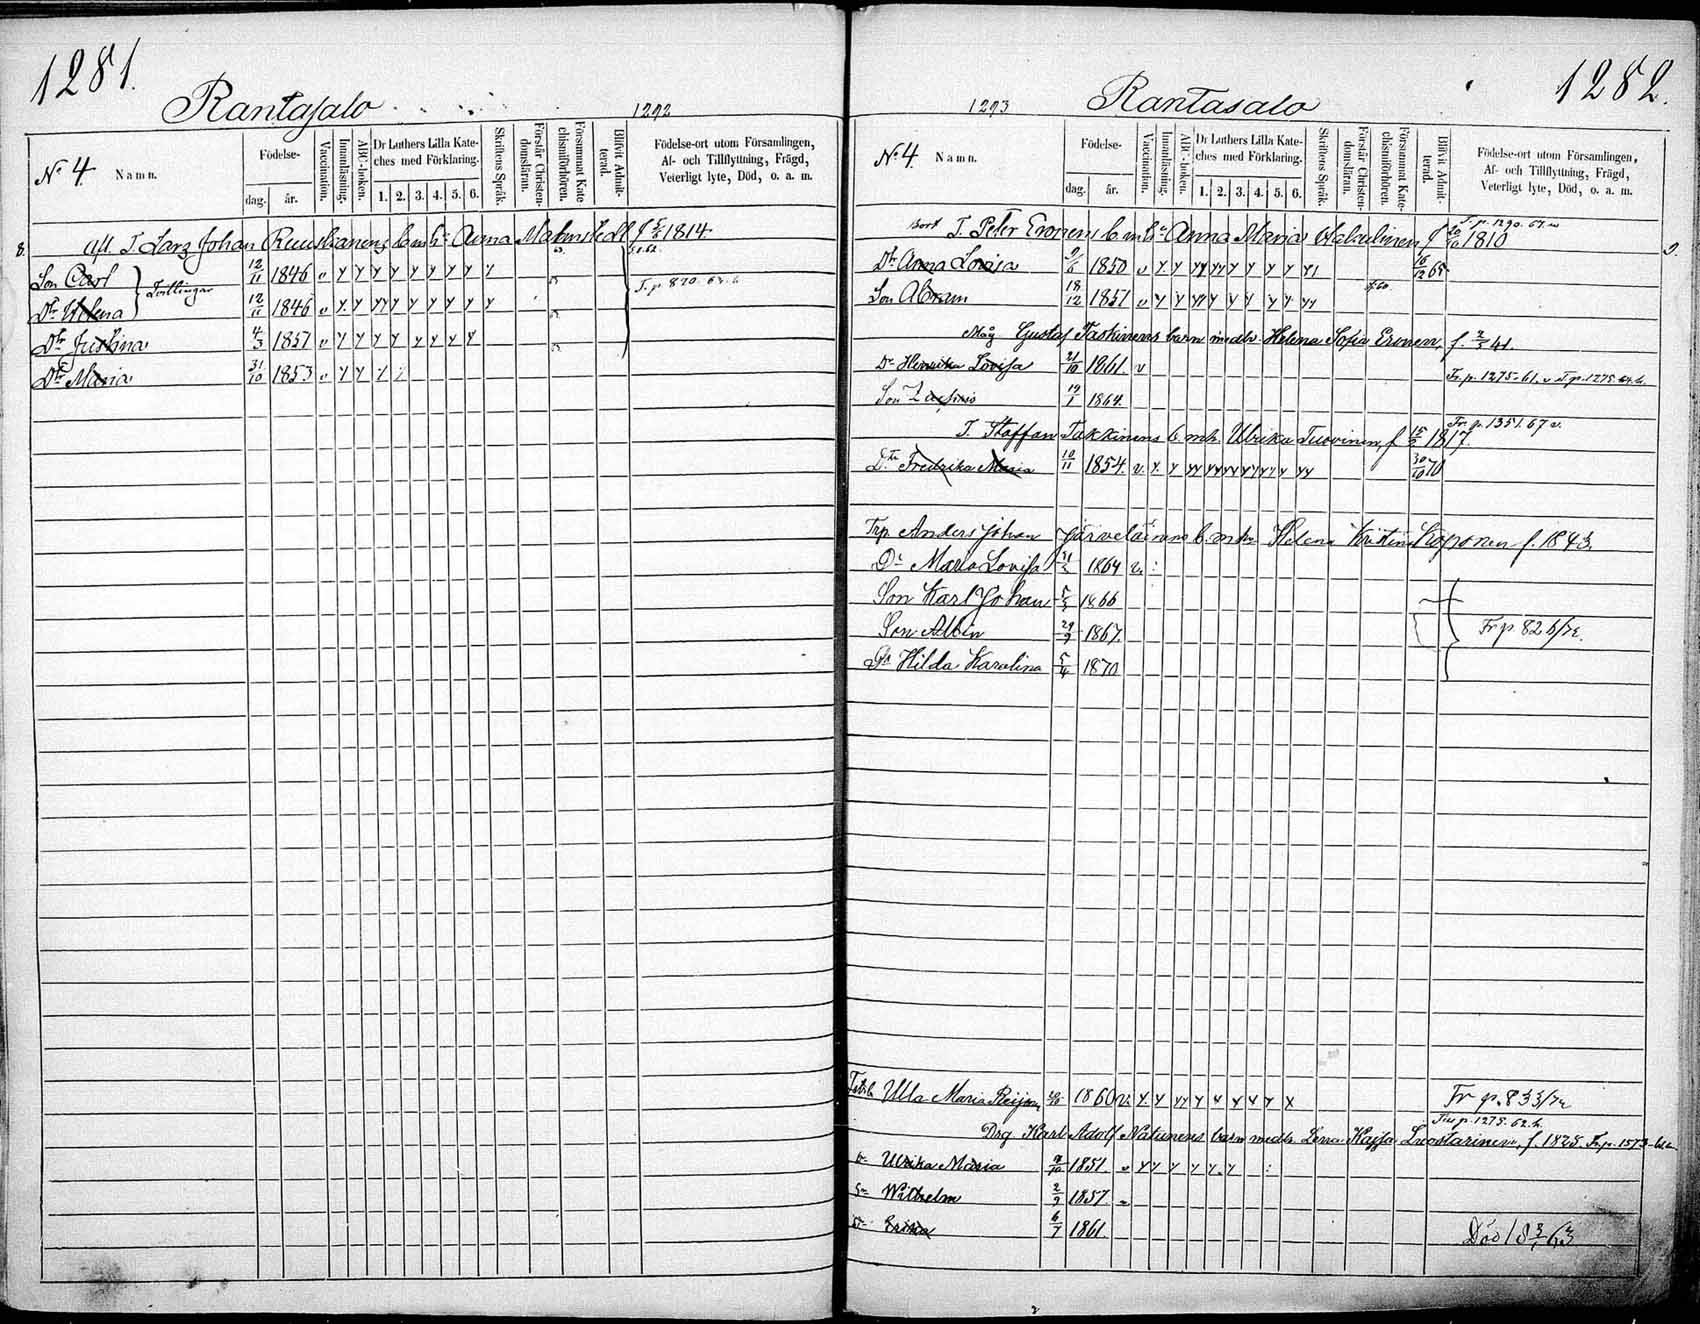 1281.
Rantasalo
1292
No 4 Namn.
Födelse-
dag. år.
Vaccination.
Innanläsning.
ABC-boken.
Dr Luthers Lilla Kate-
ches med Förklaring.
1. 2. 3. 4. 5. 6.
Skriftens Språk.
Förstår Christen-
domsläran.
Försummat Kate
chismiförhören.
Blifvit Admit-
terad.
Födelse-ort utom Församlingen,
Af- och Tillflyttning, Frägd,
Veterligt lyte, Död, o. a. m.
8. afl. T. Lars Johan Ruuskanens b. m. h. Anna Malmstedt f 1814
Son Carl 12/11 1846 v y y y y y y y y y
Tvillingar
Dtr Helena 12/11 1846 v y y yy y y y y y y
T. p 870. 62. b.
Dtr Justina 4/3 1851 v y y y y y y y y
Dtr Maria 31/10 1853 v y y y
1282.
1293
Rantasalo
No 4. Namn.
Födelse-
dag. år.
Vaccination.
Innanläsning.
ABC-boken.
Dr Luthers Lilla Kate-
ches med Förklaring.
1. 2. 3. 4. 5. 6.
Skriftens Språk.
Förstår Christen-
domsläran.
Försummat Kate-
chismiförhören.
Blifvit Admit-
terad.
Födelse-ort utom Församlingen,
Af- och Tillflyttning, Frägd,
Veterligt lyte, Död, o. a. m.
T. p. 1290. 67.
bort T. Peter Eronens b. m. h. Anna Maria Hakulinen f 20/10 1810 9.
Dtr Anna Lovisa 9/6 1850 v y y yy yy y y y y y 16/12 65
Son Abram 18/12 1851 v y y yy y y y y y yy
Måg Gustaf Taskinens barn medh. Helena Sofia Eronen, f. 2/5 41.
Dr Henrika Lovisa 21/10 1861. v Fr. p. 1275-61. T. p. 1275. 64. b.
Son 19/1 1864.
Fr. p. 1351. 67 v.
T. Staffan Takkinens b. m. h. Ulrika Tuovinen, f 15/2 1817.
Dtr Fredrika Maria 10/11 1854. v. y. y yy yy yy yy yy y yy 30/10 70
Trp. Anders Johan Järveläinens b. m. h. Helena Kristina Koponen f. 1843.
Dr Maria Lovisa 1864 v.
Son Karl Johan 5/3 1866
Son Albin 29/9 1867. Fr p. 82 b/72.
Dr Hilda Karolina 5/4 1870
Ulla Maria Reijonen 1860 v. y y yy y y y y y x Fr p. 833/72
T. p. 1275. 62. b.
Drg Karl Adolf Natunens barn medh. Lena Kajsa Luostarinen, f. 1825. Fr. p. 1573
Dr Ulrika Maria 1851. v y y y y y y
Sn Wilhelm 2/9 1857
Dr Erika 6/7 1861 Död 18 3/1 63